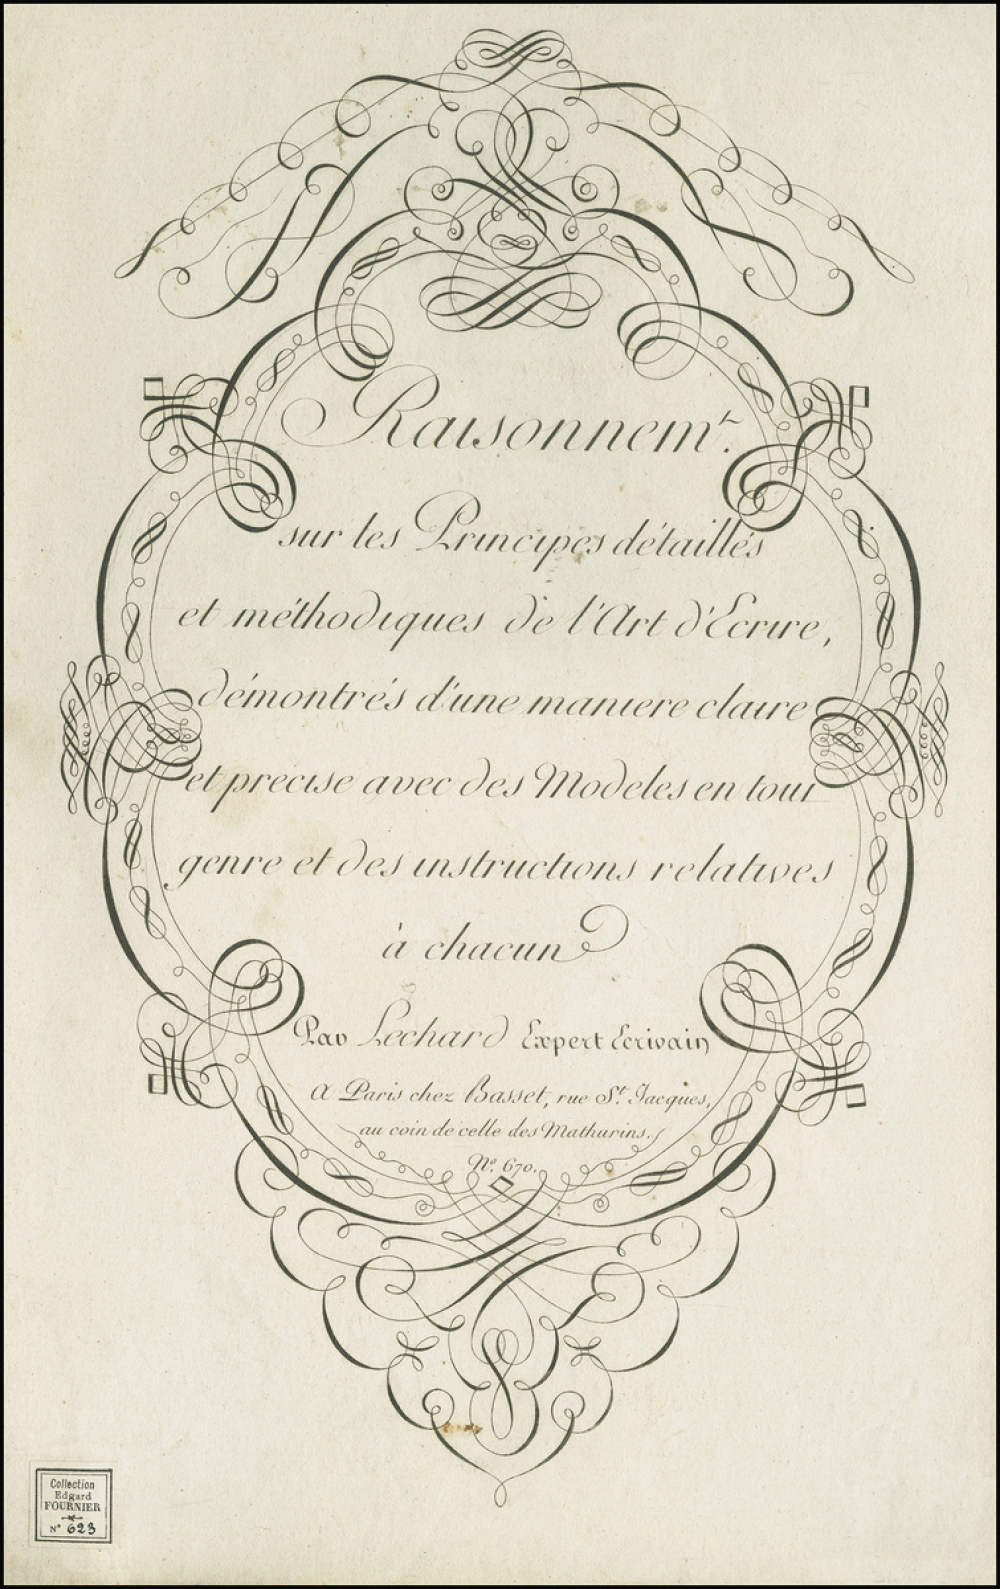 Raisonnemt.
sur les Principes détaillés
et méthodiques de l'Art d'Ecrire,
démontrés d'une maniere claire
et précise avec des Modeles en tout
genre et des instructions relatives
à chacun
Par Lechard Expert Ecrivain
A Paris chez Basset, rue St. Jacques,
au coin de celle des Mathurins.
No. 670.
Collection
Edgard
FOURNIER
N° 623